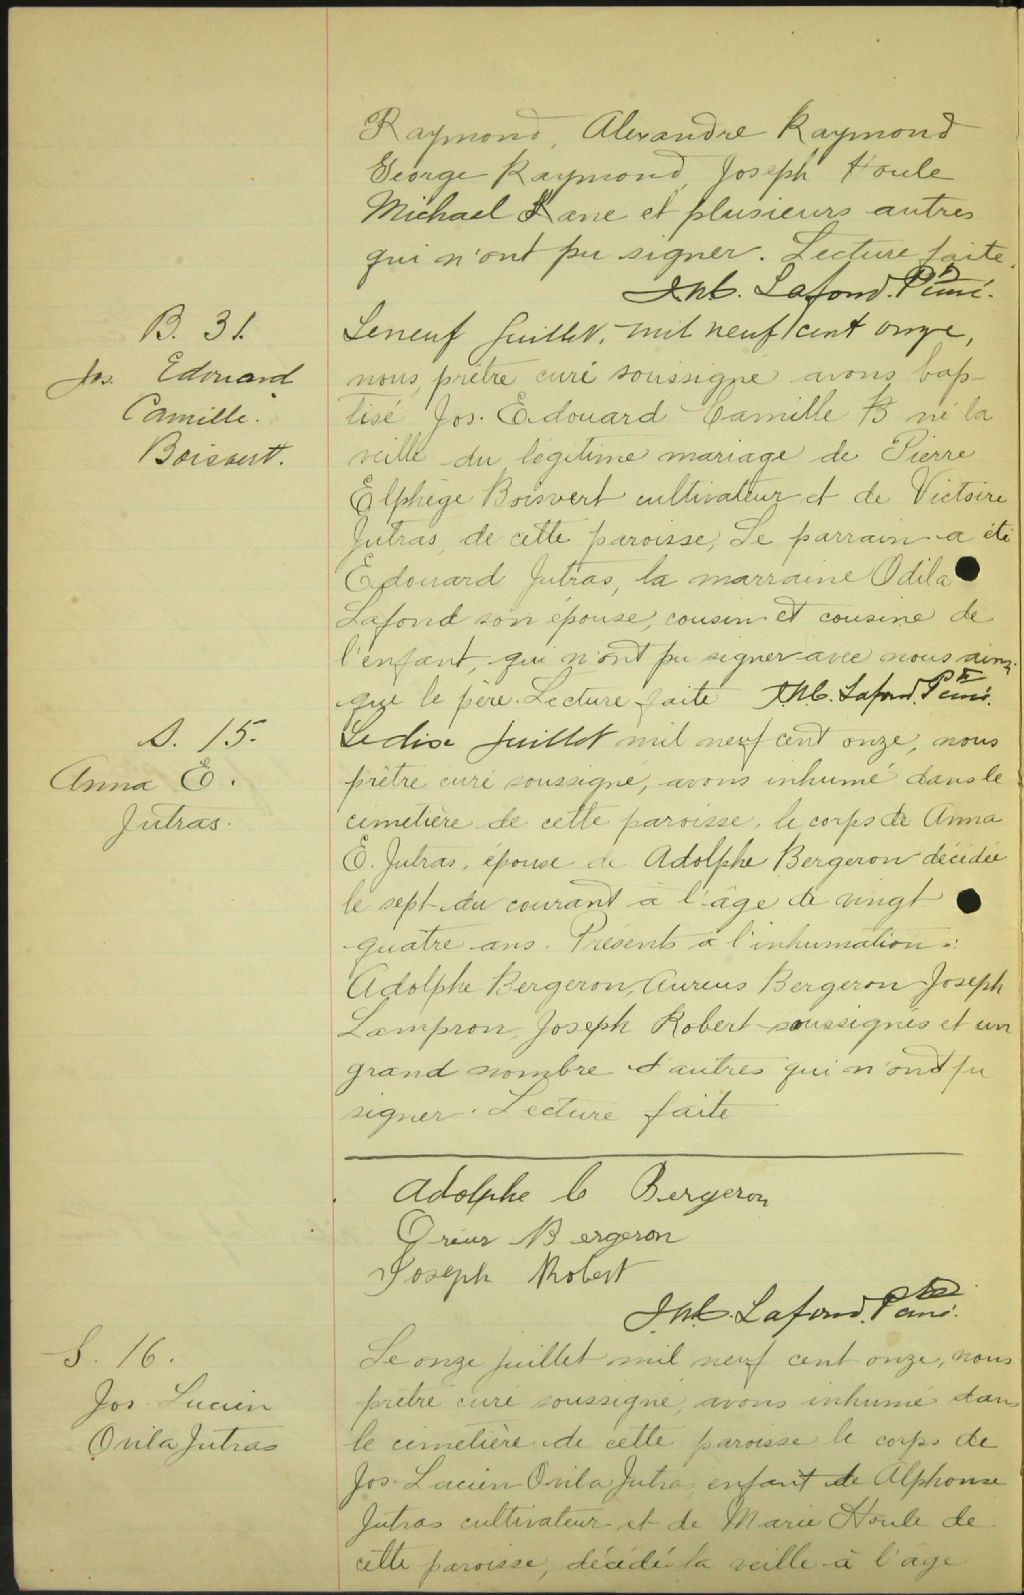 Raymond, Alexandre Raymond
George Raymond, Joseph Houle
Michael Kane et plusieurs autres
qui n'ont pu signer. Lecture faite.
Lafond. Ptre curé.
B. 31.
Jos. Edouard
Camille.
Boisvert.
Le neuf Juillet, mil neuf cent onze,
nous, prêtre curé soussigné avons bap-
tisé Jos. Edouard Camille B né la
veille du légitime mariage de Pierre
Elphège Boisvert cultivateur et de Victoire
Jutras, de cette paroisse, Le parrain a été
Edouard Jutras, la marraine Odila
Lafond son épouse, cousin et cousine de
l'enfant, qui n'ont pu signer avec nous ainsi
que le père. Lecture faite Lafond. Ptre curé.
S. 15.
Anna E.
Jutras.
Le dix Juillet mil neuf cent onze, nous
prêtre curé soussigné, avons inhumé dans le
cimetière de cette paroisse, le corps de Anna
E. Jutras, épouse de Adolphe Bergeron décédée
le sept du courant à l'âge de vingt
quatre ans. Présents à l'inhumation:
Adolphe Bergeron, Aureus Bergeron Joseph
Lampron, Joseph Robert soussignés et un
grand nombre d'autres qui n'ont pu
signer. Lecture faite
Adolphe C Bergeron
Oréus Bergeron
Joseph Robert
Lafond. Ptre curé.
S. 16.
Jos Lucien
Ovila Jutras
Le onze juillet mil neuf cent onze, nous
prêtre curé soussigné, avons inhumé dans
le cimetière de cette paroisse le corps de
Jos. Lucien Ovila Jutra, enfant de Alphonse
Jutras cultivateur et de Marie Houle de
cette paroisse, décédé la veille à l'âge